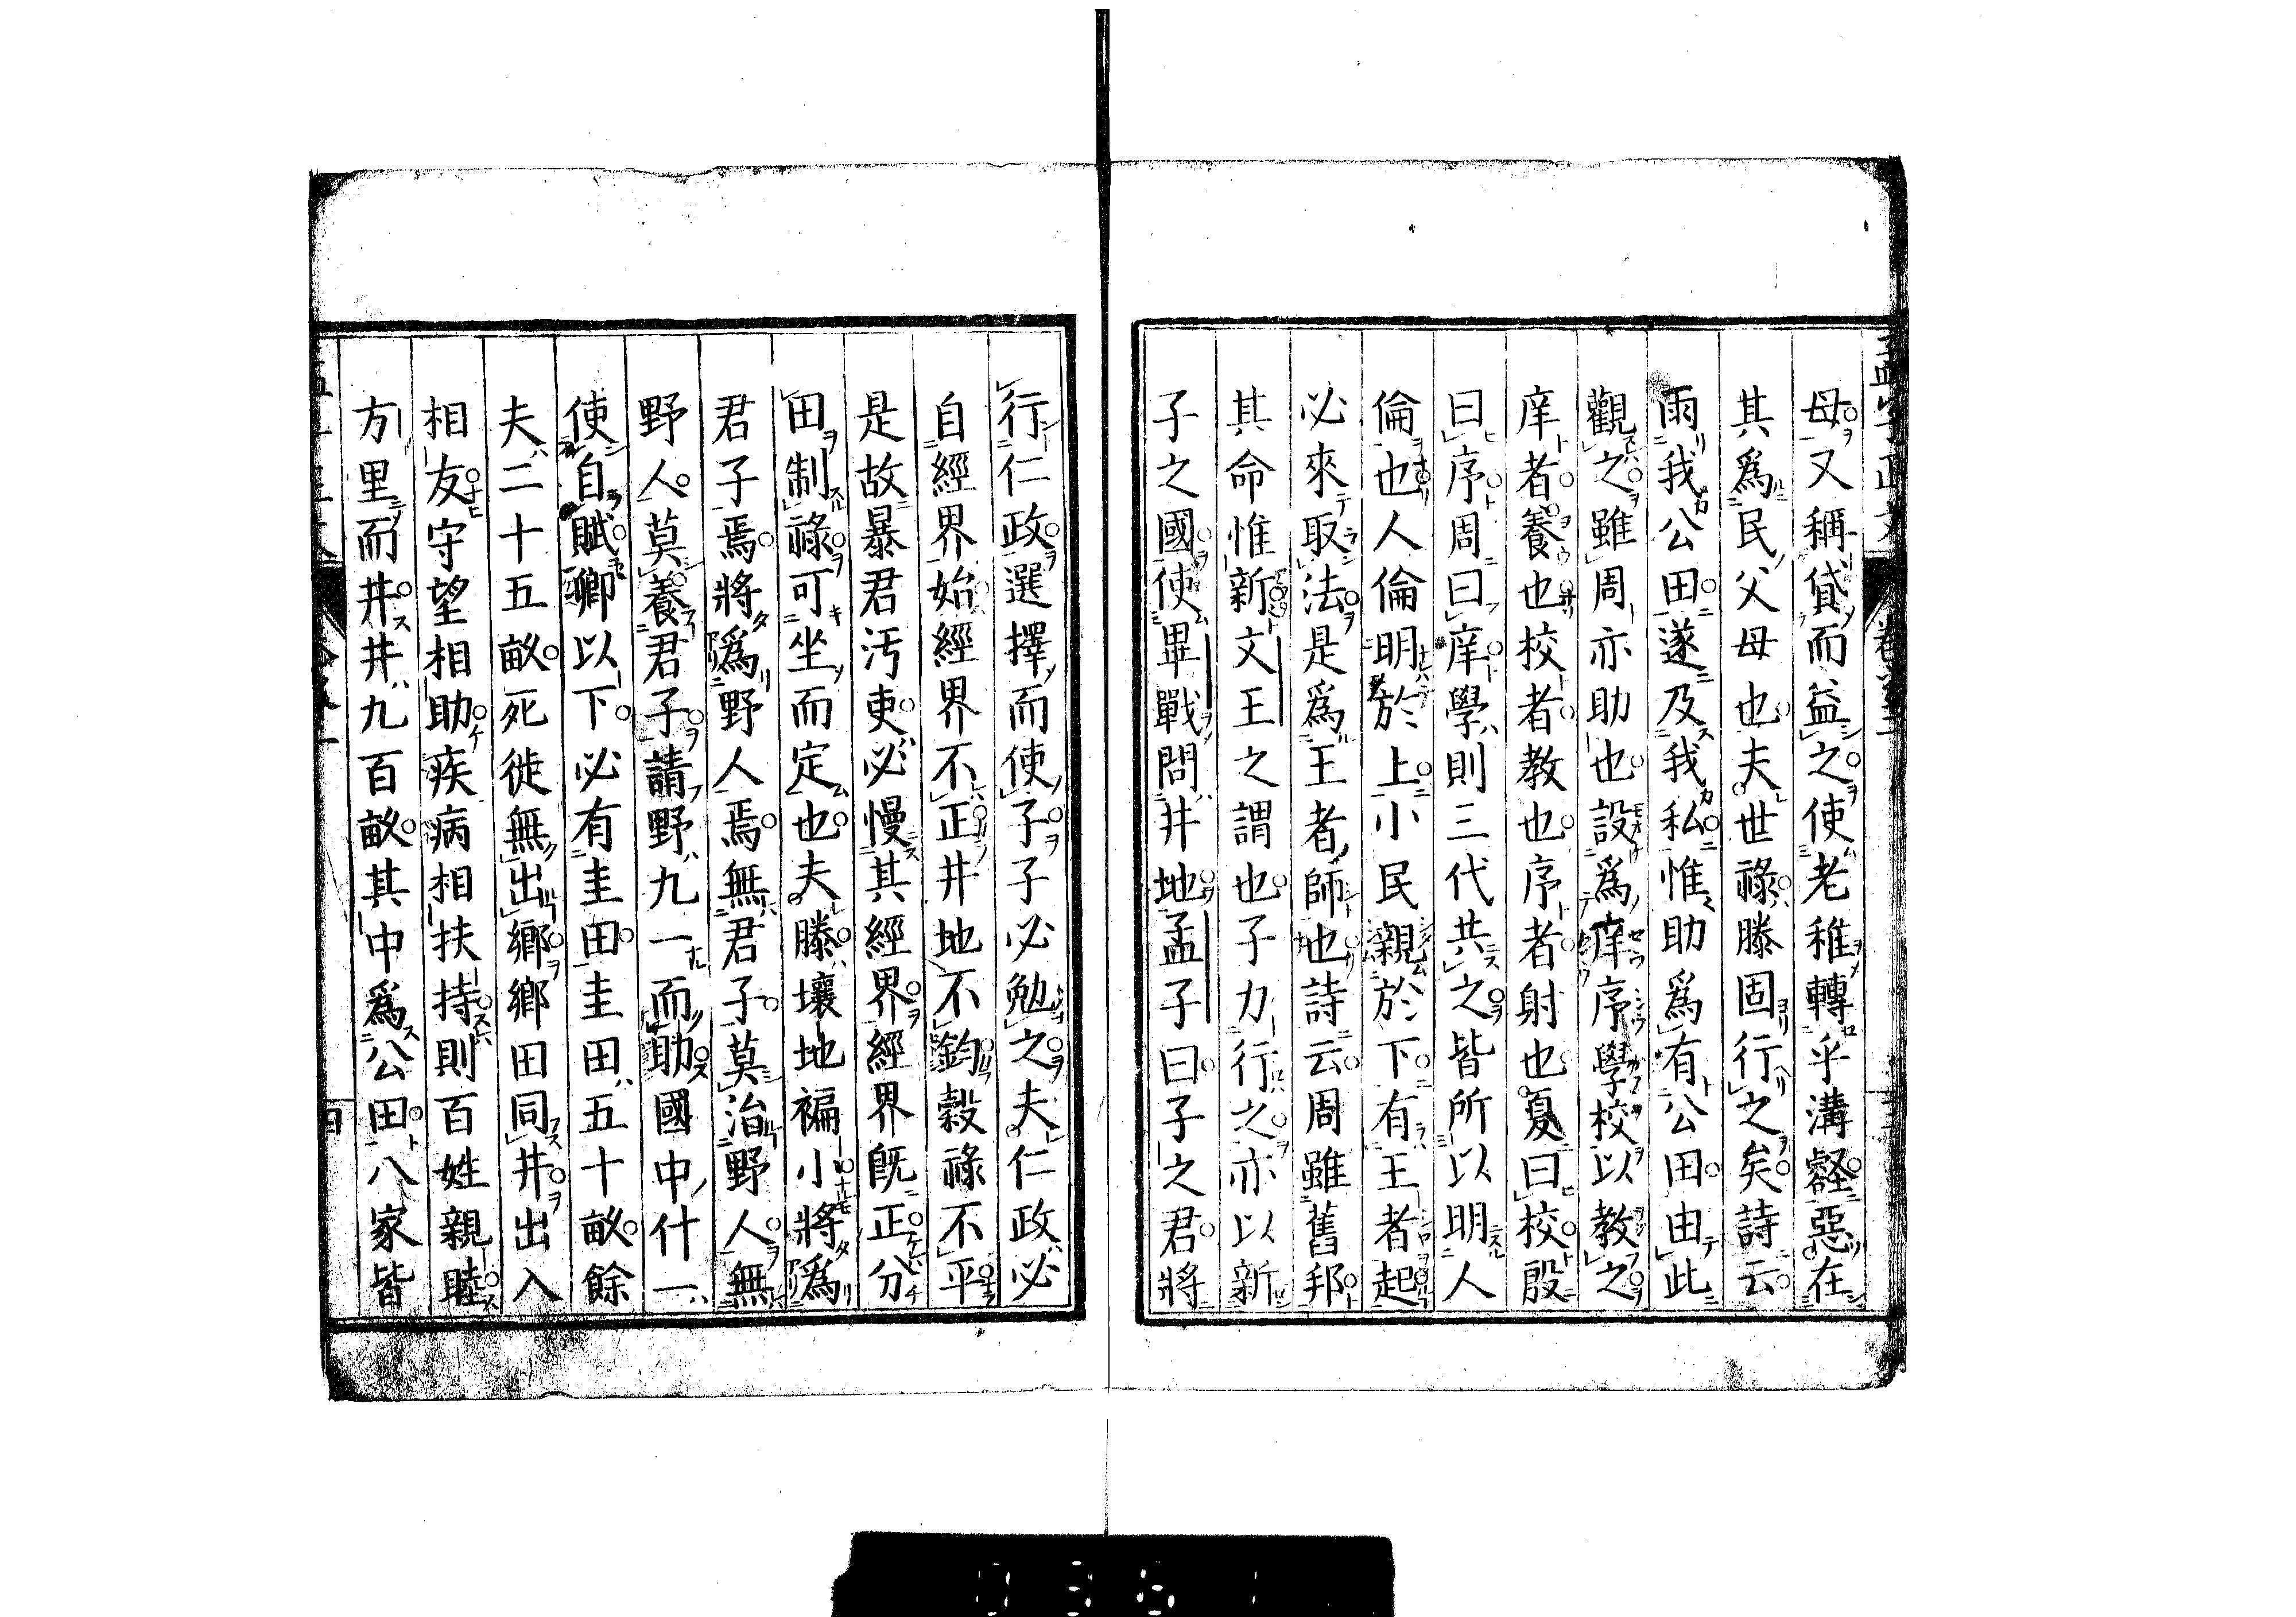 母又稱貸而益之使老稚轉乎溝壑惡在
其爲民父母也夫世祿滕固行之矣詩云
雨我公田遂及我私惟助爲有公田由此
觀之雖周亦助也設爲庠序學校以教之
庠者養也校者教也序者射也夏曰校殷
曰序周曰庠學則三代共之皆所以明人
倫也人倫明於上小民親於下有王者起
必來取法是爲王者師也詩云周雖舊邦
其命惟新文王之謂也子力行之亦以新
子之國使畢戰問井地孟子曰子之君將
行仁政選擇而使子子必勉之夫仁政必
自經界始經界不正井地不鈞穀祿不平
是故暴君汚吏必慢其經界經界既正分
田制祿可坐而定也夫滕壤地褊小將爲
君子焉將爲野人焉無君子莫治野人無
野人莫養君子請野九一而助國中什一
使自賦卿以下必有圭田圭田五十畝餘
夫二十五畝死徙無出鄉鄉田同井出入
相友守望相助疾病相扶持則百姓親睦
方里而井井九百畝其中爲公田八家皆